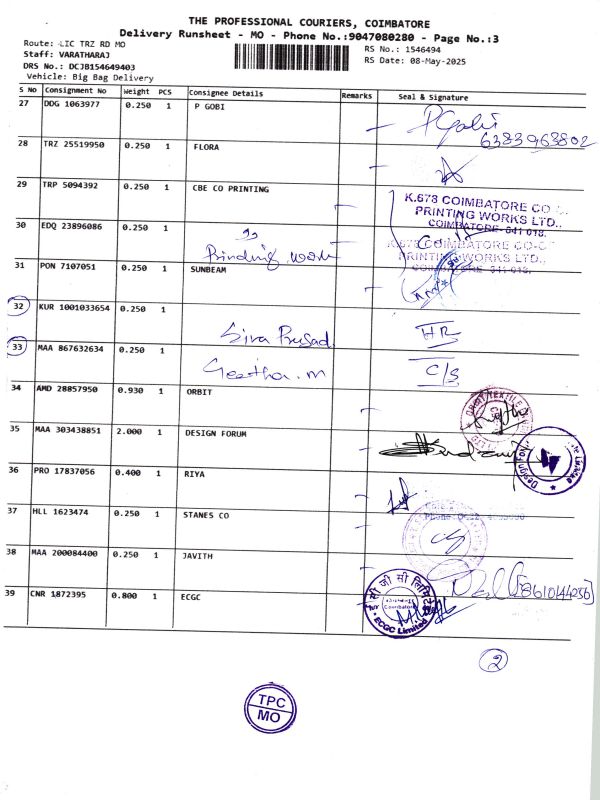 THE PROFESSIONAL COURIERS, COIMBATORE
Delivery Runsheet - MO - Phone No.:9047080280 - Page No.:3
Route: LIC TRZ RD MO
RS No.: 1546494
Staff: VARATHARAJ
RS Date: 08-May-2025
DRS No.: DCJB154649403
Vehicle: Big Bag Delivery
S No Consignment No Weight PCS Consignee Details Remarks Seal & Signature
27 DDG 1063977 0.250 1 P GOBI P Gobi
6383963802
28 TRZ 25519950 0.250 1 FLORA
29 TRP 5094392 0.250 1 CBE CO PRINTING
K.678 COIMBATORE CO
PRINTING WORKS LTD.,
COIMBATORE- 641 018.
30 EDQ 23896086 0.250 1 " Prinding work
K.678 COIMBATORE CO-O
PRINTING WORKS LTD.,
COIMBATORE- 641 018.
31 PON 7107051 0.250 1 SUNBEAM
32 KUR 1001033654 0.250 1 Siva Prasad HR
33 MAA 867632634 0.250 1 Geetha.m C/S
34 AMD 28857950 0.930 1 ORBIT
35 MAA 303438851 2.000 1 DESIGN FORUM
36 PRO 17837056 0.400 1 RIYA
37 HLL 1623474 0.250 1 STANES CO
38 MAA 200084400 0.250 1 JAVITH
39 CNR 1872395 0.800 1 ECGC
Coimbatore
ECGC Limited
2
TPC
MO